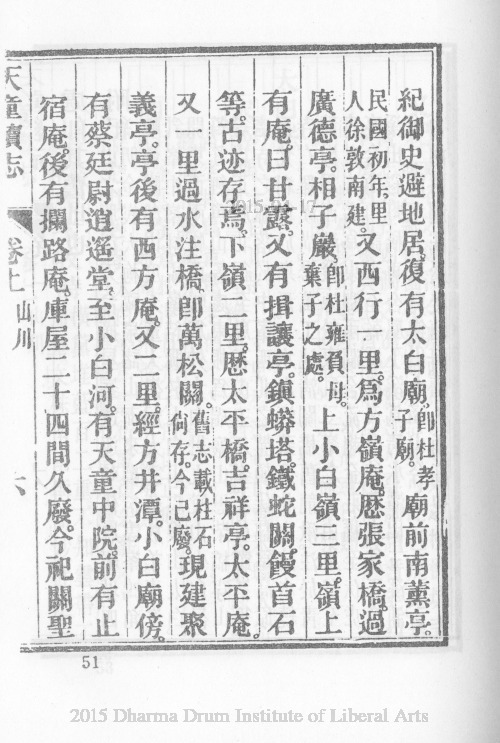 紀御史避地居。復有太白廟。卽杜孝子廟。廟前南薰亭。
民國初年。里人徐敦南建。又西行一里。爲方嶺庵。歷張家橋。過
廣德亭。相子巖。卽杜雍負母。棄子之處。上小白嶺三里。嶺上
有庵。曰甘露。又有揖讓亭。鎭蟒塔。鐵蛇關。饅首石
等。古迹存焉。下嶺二里。歷太平橋。吉祥亭。太平庵。
又一里過水注橋。卽萬松關。舊志載、柱石尙存。今已廢。現建聚
義亭。亭後有西方庵。又二里。經方井潭。小白廟傍。
有蔡廷尉逍遙堂。至小白河。有天童中院。前有止
宿庵。後有攔路庵。庫屋二十四間久廢。今祀關聖
天童續志
卷上
山川
六
51
2015 Dharma Drum Institute of Liberal Arts